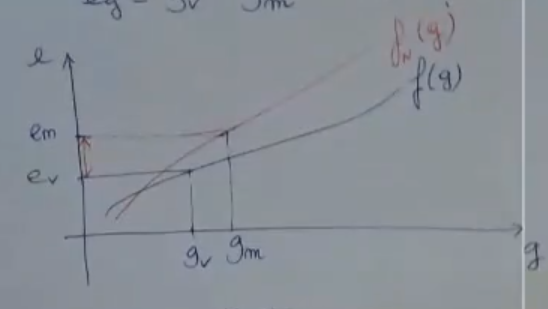 eg = gv - gm
e
fN(g)
f(g)
em
ev
gv gm
g